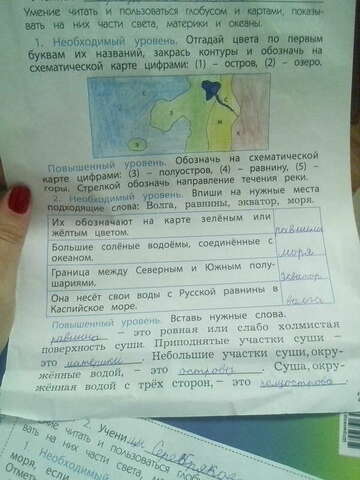 Умение читать и пользоваться глобусом и картами, показы-
вать на них части света, материки и океаны.
1. Необходимый уровень. Отгадай цвета по первым
буквам их названий, закрась контуры и обозначь на
схематической карте цифрами: (1) – остров, (2) – озеро.
Повышенный уровень. Обозначь на схематической
карте цифрами: (3) – полуостров, (4) – равнину, (5) –
горы. Стрелкой обозначь направление течения реки.
2. Необходимый уровень. Впиши на нужные места
подходящие слова: Волга, равнины, экватор, моря.
Их обозначают на карте зелёным или
жёлтым цветом. равнины
Большие солёные водоёмы, соединённые с
океаном. моря
Граница между Северным и Южным полу-
шариями. экватор
Она несёт свои воды с Русской равнины в
Каспийское море. волга
Повышенный уровень. Вставь нужные слова.
равнина – это ровная или слабо холмистая
поверхность суши. Приподнятые участки суши –
это материки. Небольшие участки суши, окру-
жённые водой, – это острова. Суша, окру-
жённая водой с трёх сторон, – это
2. Учени
читать и пользоваться глобусом
вать на них части света,
1. Необходимый
моря, если